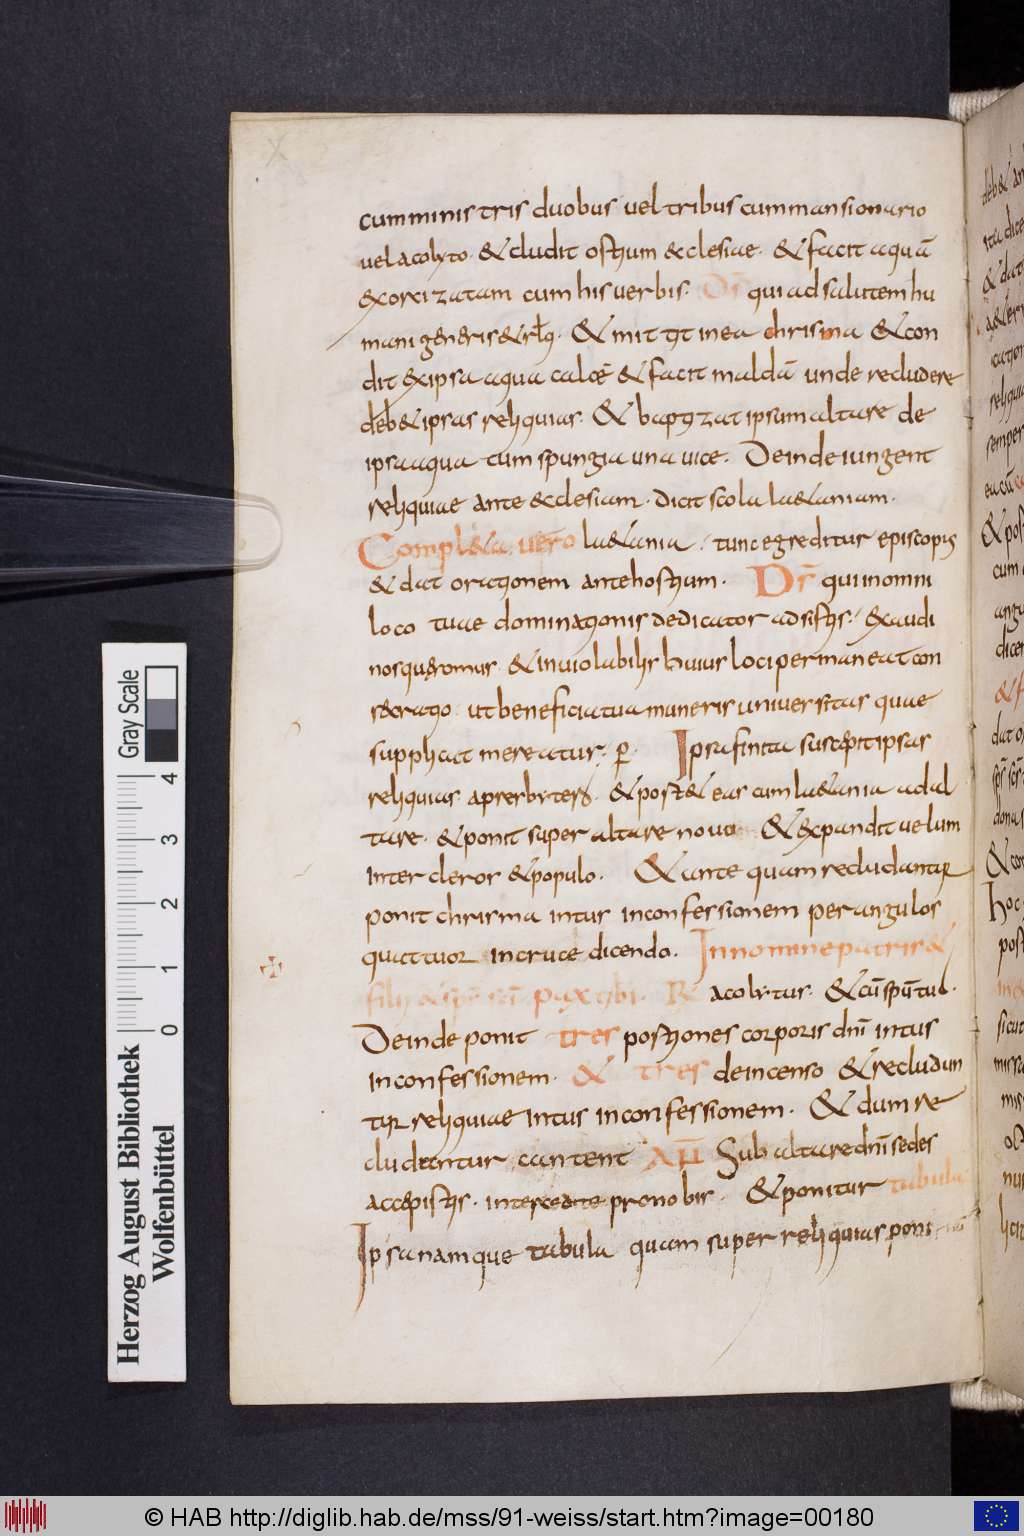 cum ministris duobus vel tribus cum mansionario
vel acolyto · & cludit ostium ecclesiae · & facit aquā
exorcizatam cum his verbis · Ds̄ qui ad salutem hu
mani generis & rłq · & mittit in ea chrisma & con
dit ex ipsa aqua calcē & facit maldā unde recludere
deb& ipsas reliquias · & baptizat ipsum altare de
ipsa aqua cum spungia una vice · Deinde iungent
reliquiae ante ecclesiam · dicit scola la&aniam ·
Compl&a vero la&ania · tunc egreditur episcopus
& dat orationem ante hostium · Ds̄ qui in omni
loco tuae dominationis dedicator adsistis · exaudi
nos quęsomus · & inviolabilis huius loci permaneat con
secratio · ut beneficia tua muneris universitas quae
supplicat mereatur · p̄ · Ipsa finita suscepit ipsas
reliquias a presbyteris · & post& eas cum la&ania ad al
tare · & ponit super altare novo & expandit velum
inter cleros & populo · & ante quam recludantur
ponit chrisma intus in confessionem per angulos
quattuor in cruce dicendo · In nomine patris &
filii & sp̄s scī pax tibi · R acolytus · & cū sp̄u tuo ·
Deinde ponit tres postiones corporis dnī intus
in confessionem · & tres de incenso & recludun
tur reliquiae intus in confessionem · & dum re
cludentur cantent AP̄ Sub altare dnī sedes
accepistis · intercedite pro nobis · & ponitur tabula
Ipsa namque tabula quam super reliquias poni
Herzog August Bibliothek
Wolfenbüttel
0 1 2 3 4
Gray Scale
© HAB http://diglib.hab.de/mss/91-weiss/start.htm?image=00180